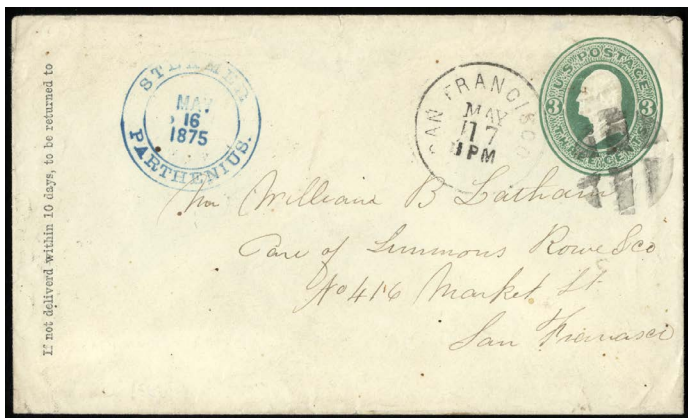 If not deliverd within 10 days, to be returned to
STEAMER
MAY
16
1875
PARTHENIUS.
SAN FRANCISCO
MAY
17
1PM
U.S. POSTAGE
3 3
THREE CENTS
Mr William B Latham
Care of Simmons Rowe & co
No 416 Market St
San Francisco